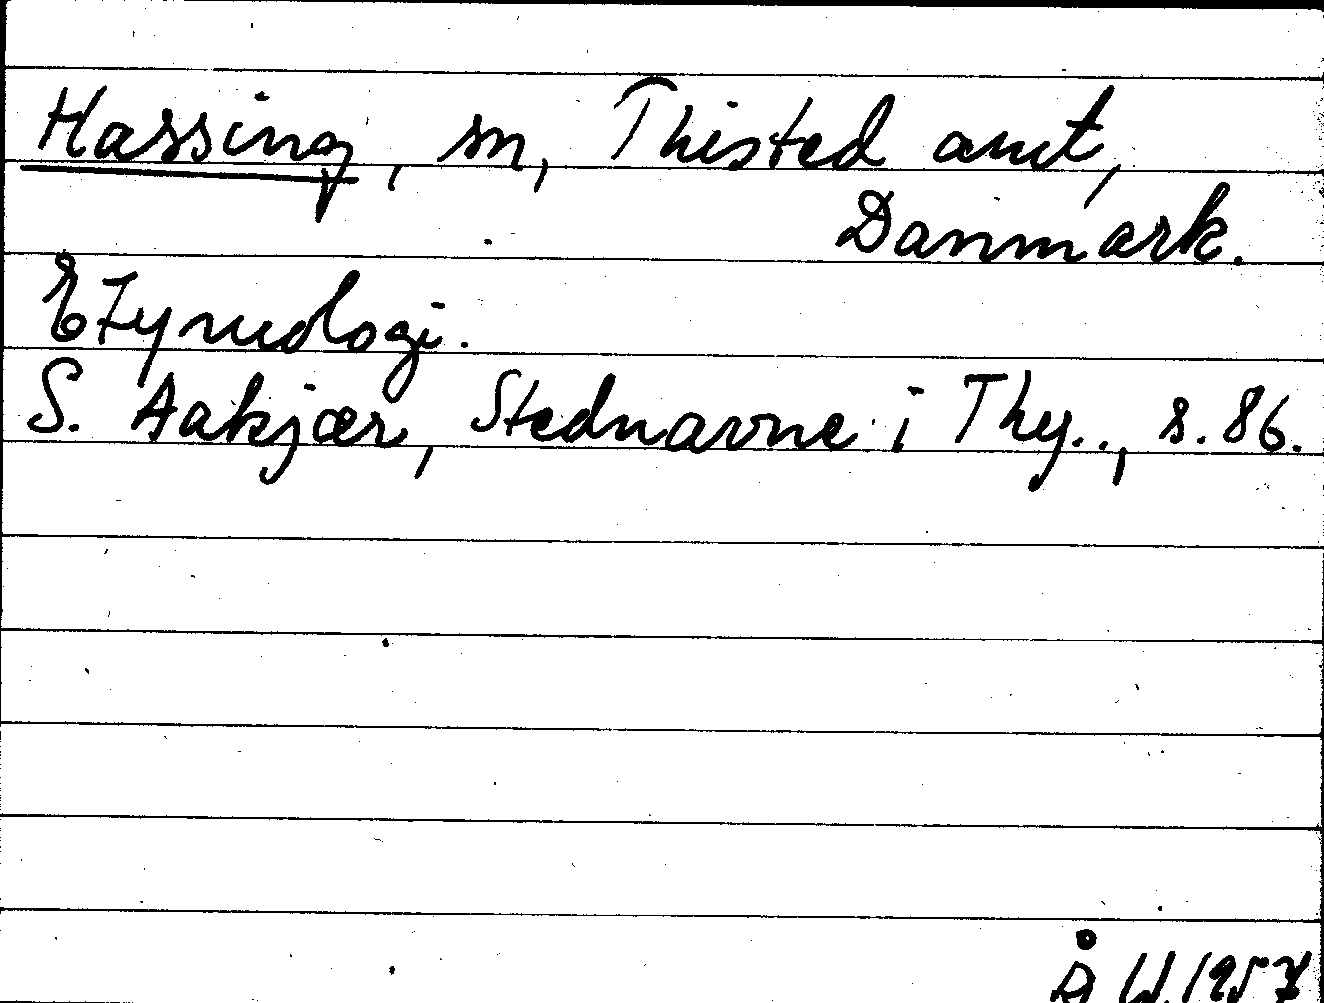 Hassing, sn, Thisted amt,
Danmark.
Etymologi.
S. Aakjær, Stednavne i Thy.., s. 86.
1957